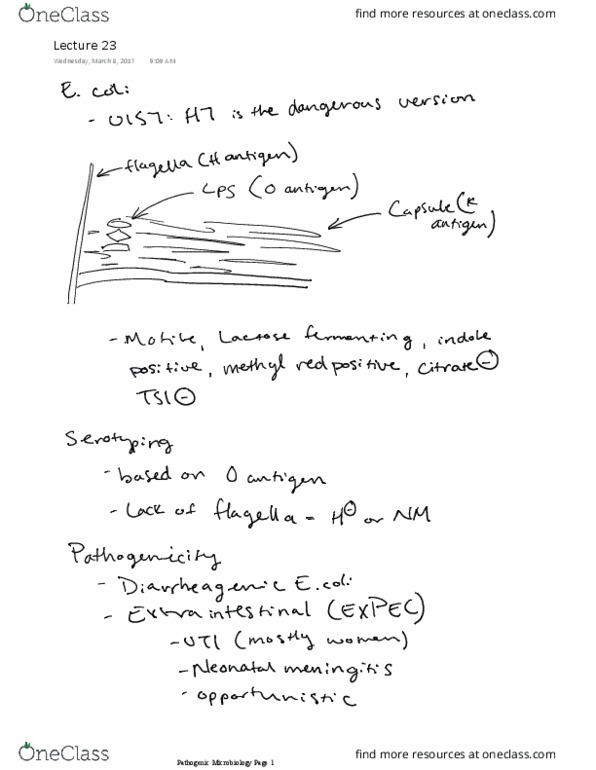 OneClass
find more resources at oneclass.com
Lecture 23
Wednesday, March 8, 2017 9:09 AM
E. coli:
- O157: H7 is the dangerous version
flagella (H antigen)
LPS (O antigen)
Capsule (K
antigen)
- Motile, Lactose fermenting, indole
positive, methyl red positive, citrate ⊖
TSI ⊖
Serotyping
- based on O antigen
- Lack of flagella = H⊖ or NM
Pathogenicity
- Diarrheagenic E. coli
- Extraintestinal (EXPEC)
- UTI (mostly women)
- Neonatal meningitis
- opportunistic
Pathogenic Microbiology Page 1
OneClass
find more resources at oneclass.com